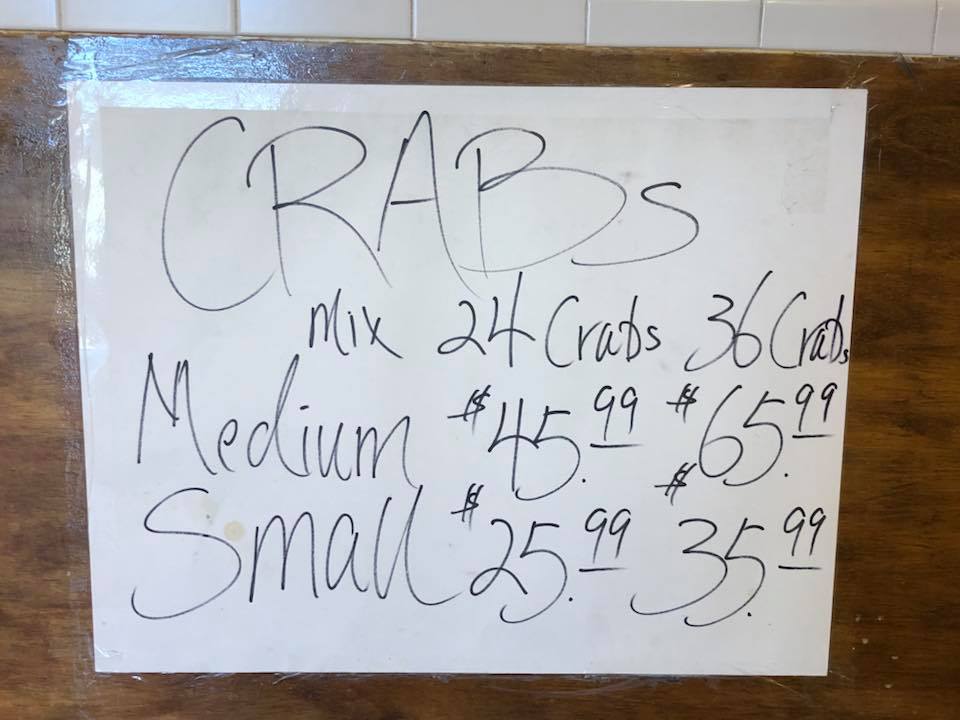 CRABs
Mix 24 Crabs 36 Crabs
Medium $45.99 $65.99
Small $25.99 $35.99